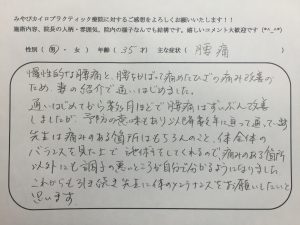 みやびカイロプラクティック療院に対するご感想をよろしくお願いいたします!!
施術内容、院長の人柄・雰囲気、院内の様子なんでも結構です。嬉しいコメント大歓迎です(*^_^*)
性別(男・女) 年齢( 35才) 主な症状( 腰痛 )
慢性的な腰痛と、腰をかばって痛めたひざの痛み改善の
ため、妻の紹介で通いはじめました。
通いはじめてから数ヶ月ほどで腰痛はずいぶん改善
しましたが、予防の意味もあり以後数年に渡って通って
先生は痛みのある箇所はもちろんのこと、体全体の
バランスを見た上で施術をしてくれるので、痛みのある箇所
以外にも調子の悪いところが自分で分かるようになりました。
これからも引き続き先生に体のメンテナンスをお願いしたいと
思います。